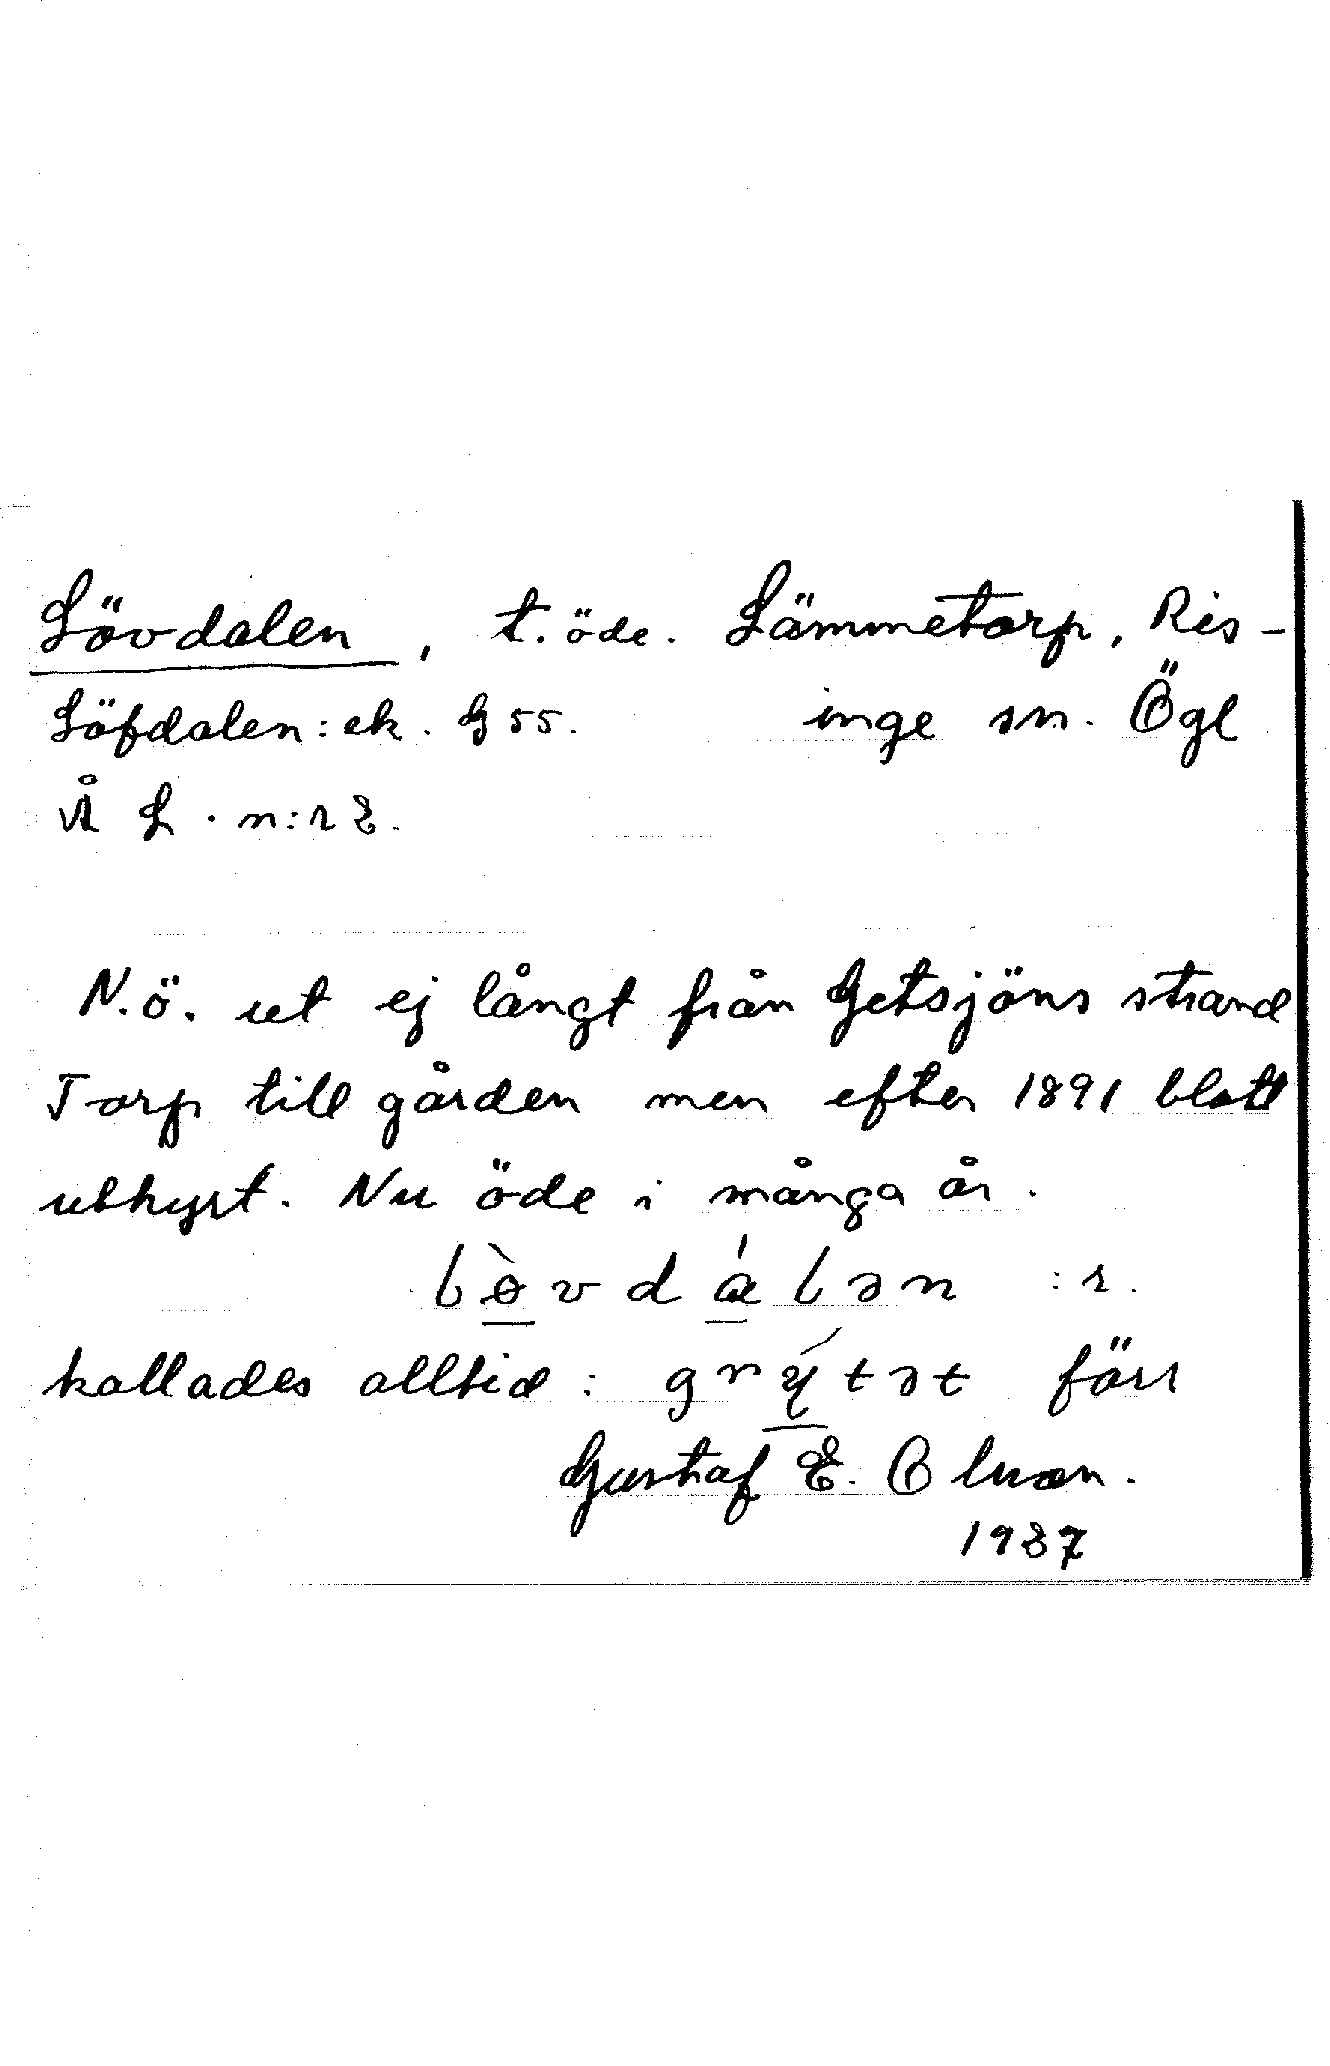 Lövdalen, t. öde. Lämmetorp, Ris-
Löfdalen: ek. G 55. inge sn. Ögl
Å L. n:r 2.
N.ö. ut ej långt från Getsjöns strand
Torp till gården men efter 1891 blott
uthyrt. Nu öde i många år.
lòvdálən :r.
kallades alltid: grýtət förr
Gustaf E. Olsson.
1937